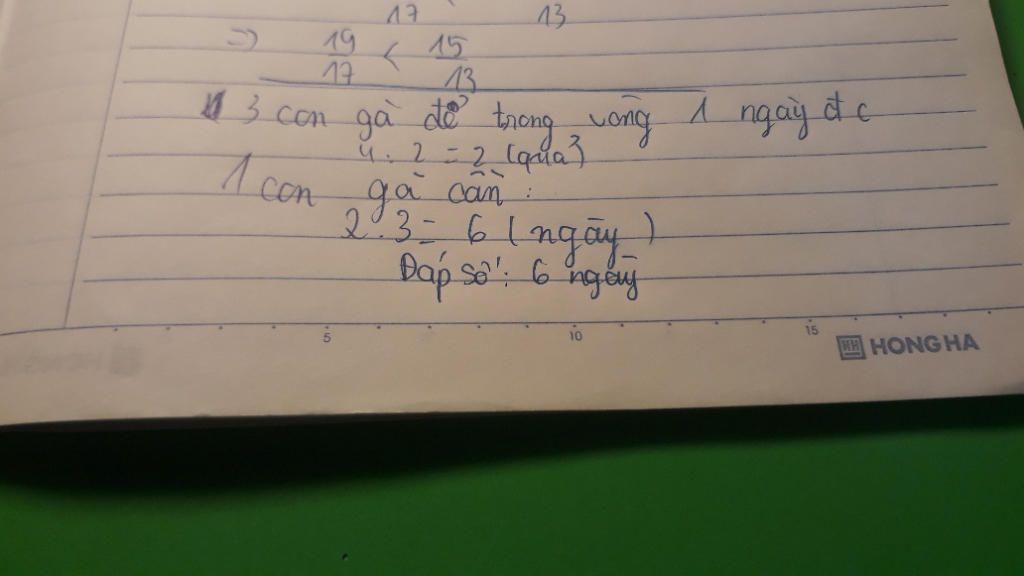 17 13
=> 19/17 < 15/13
3 con gà đẻ trong vòng 1 ngày đc
4 : 2 = 2 (quả)
1 con gà cần :
2 . 3 = 6 ( ngày )
Đáp số : 6 ngày
5 10 15
HONG HA